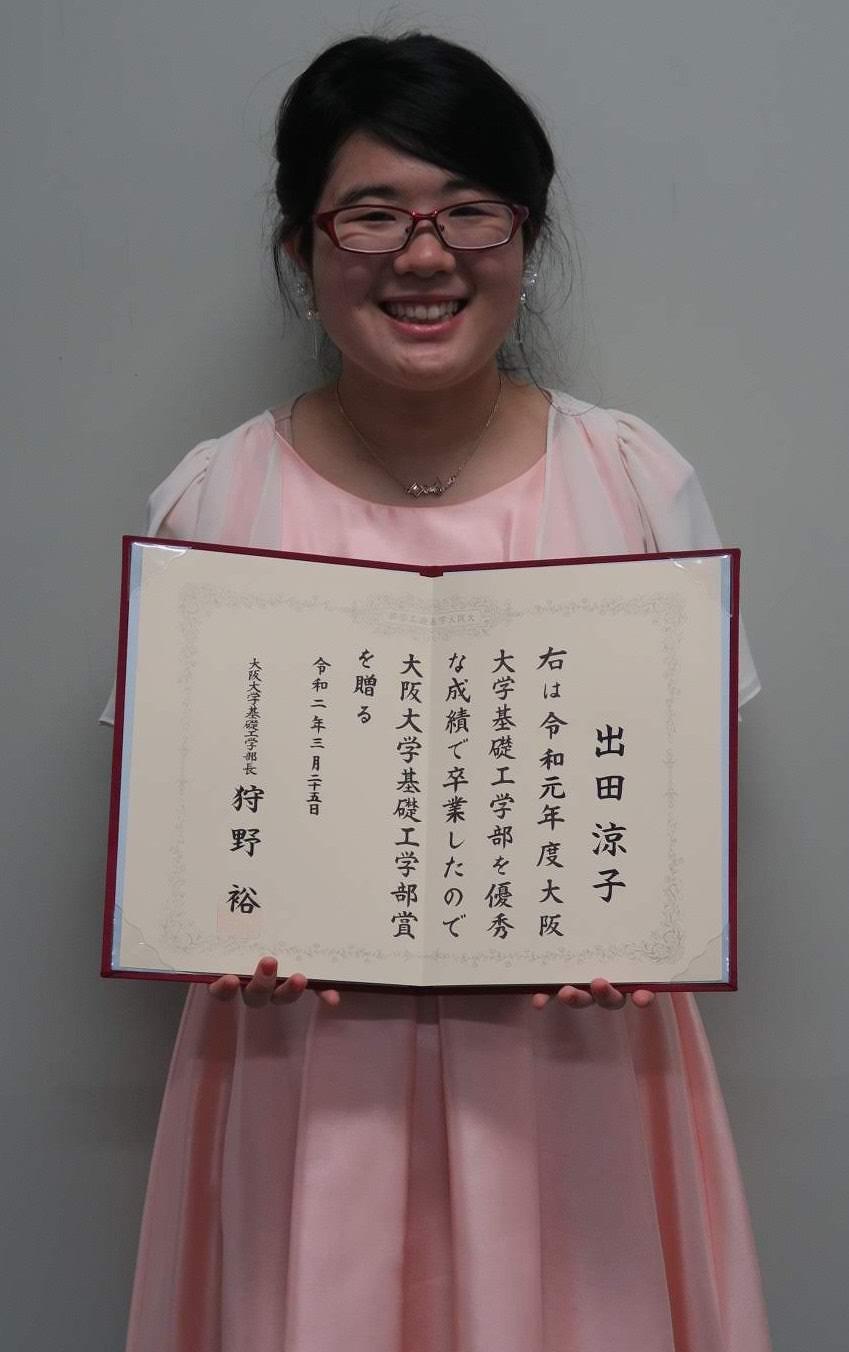 出田涼子
右は令和元年度大阪
大学基礎工学部を優秀
な成績で卒業したので
大阪大学基礎工学部賞
を贈る
令和二年三月二十五日
大阪大学基礎工学部長 狩野裕